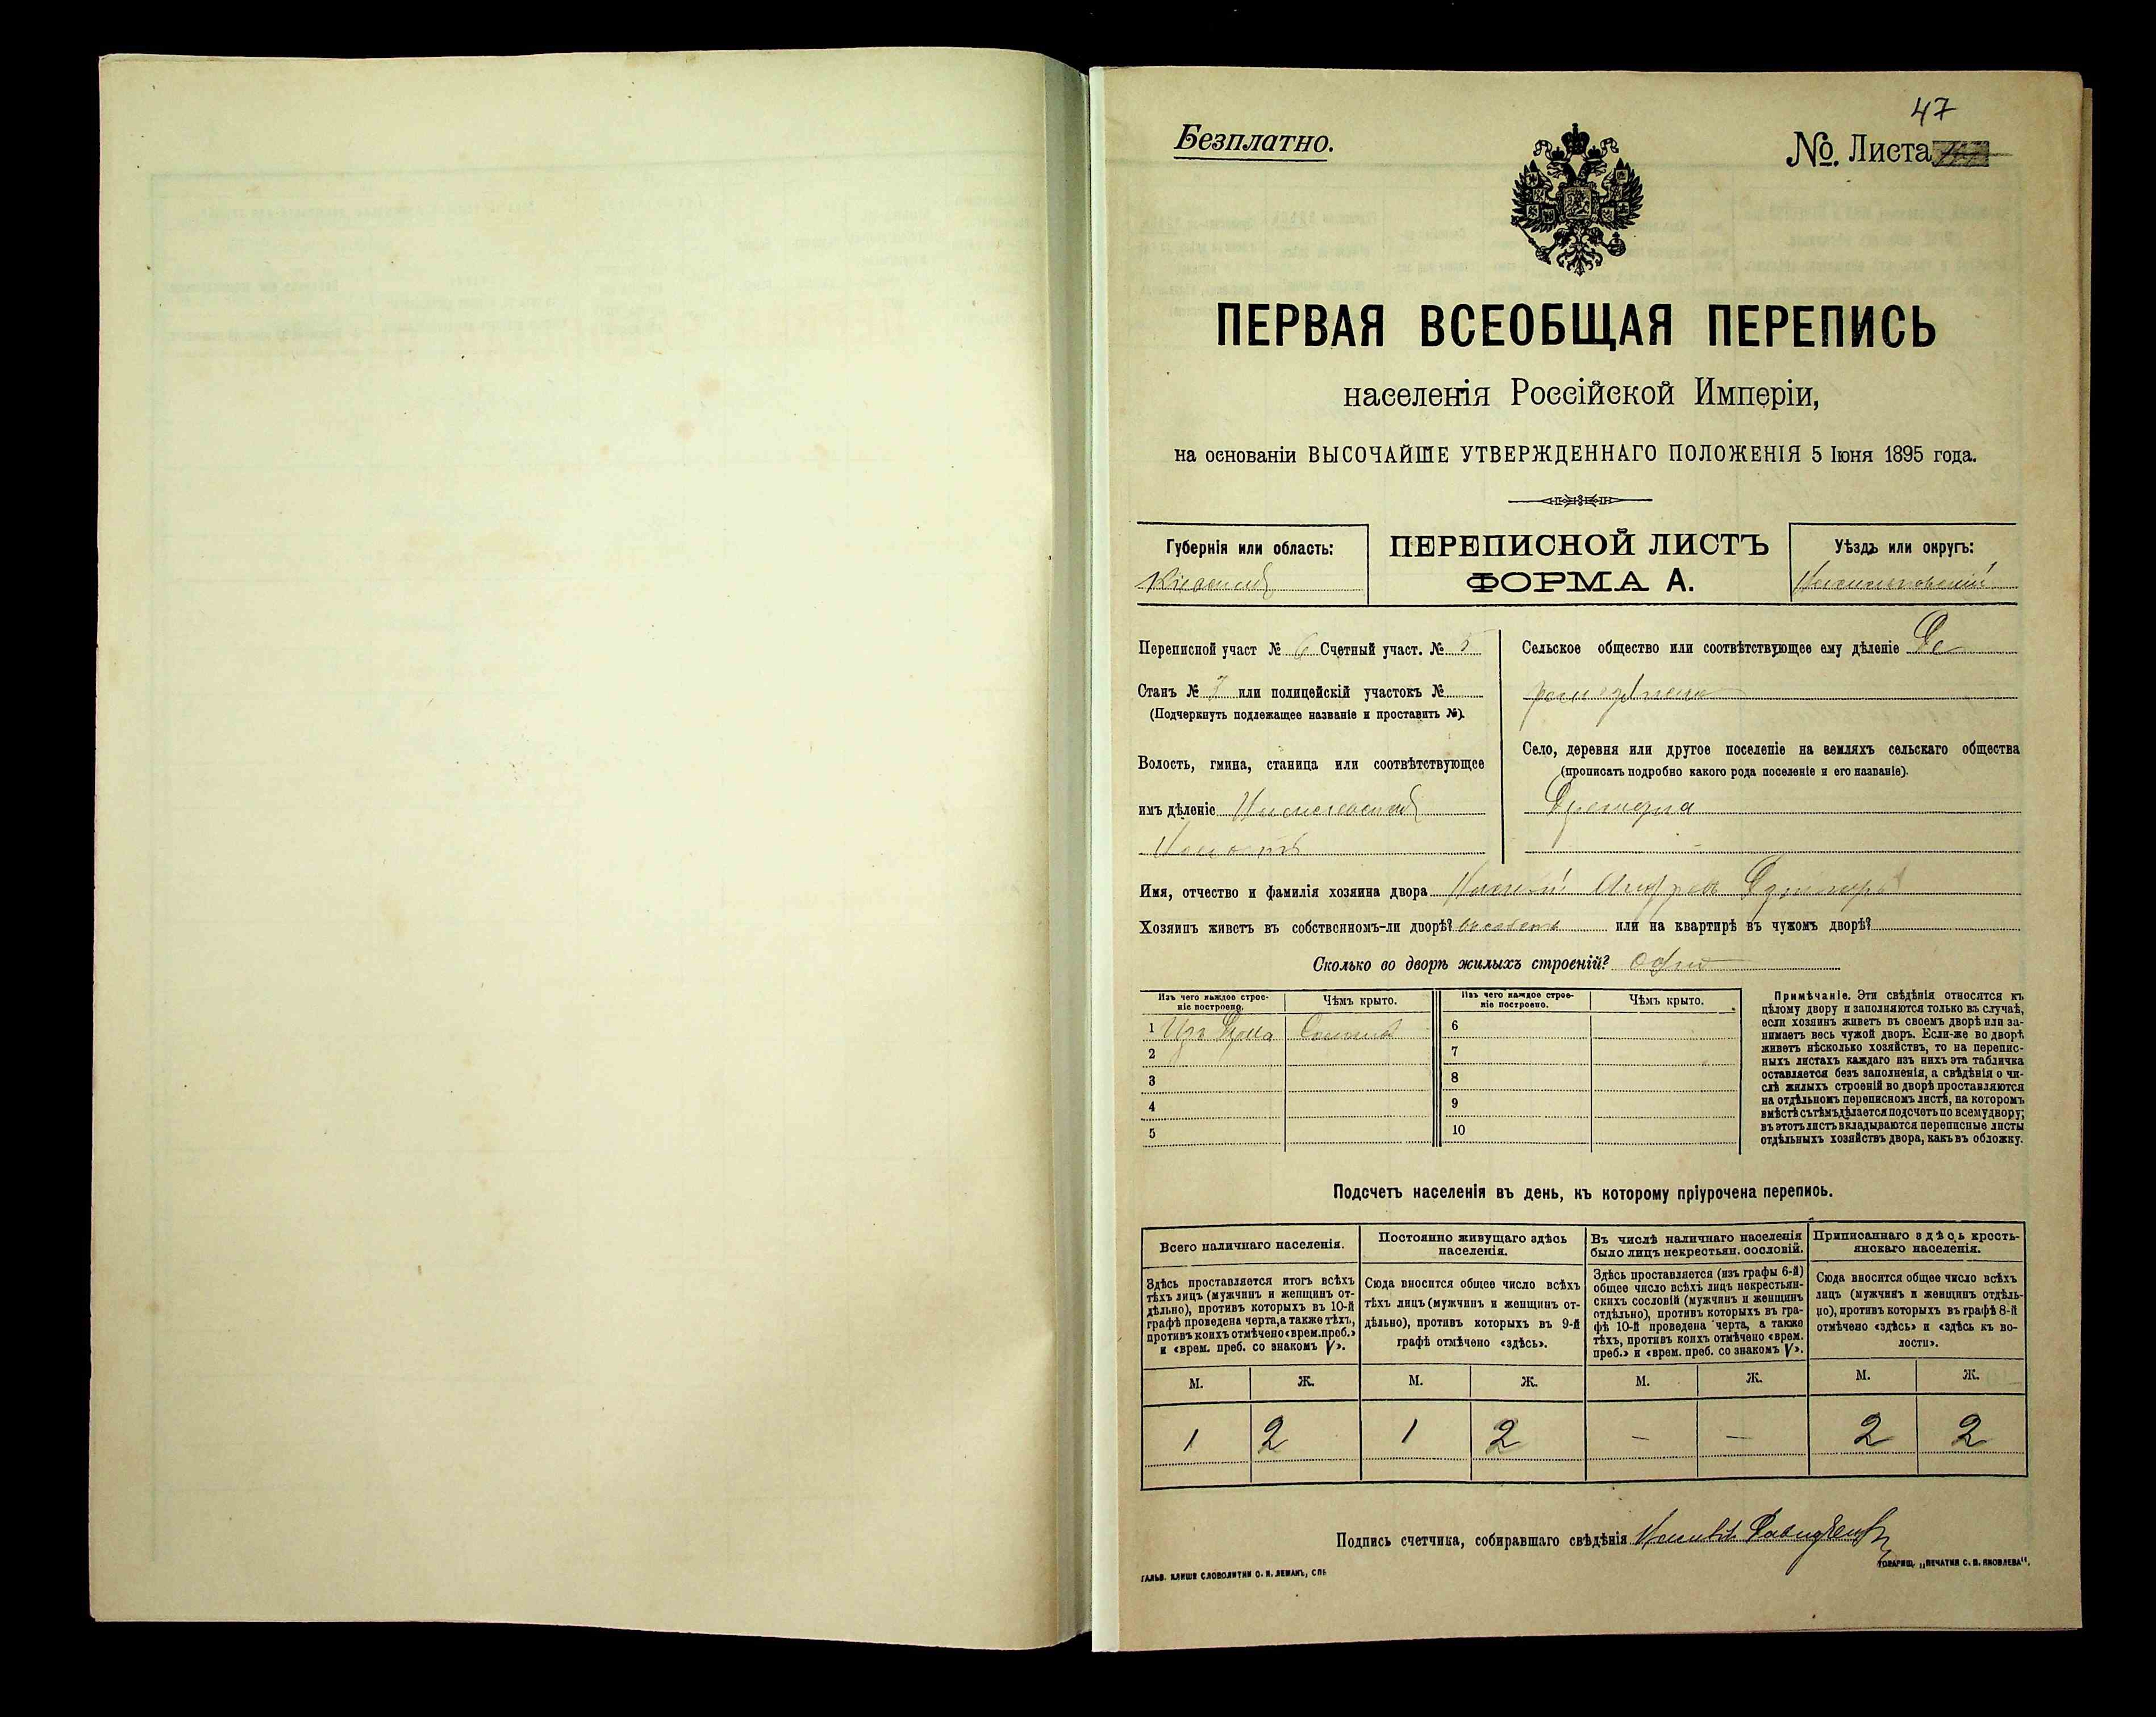 47
Безплатно.
№. Листа
ПЕРВАЯ ВСЕОБЩАЯ ПЕРЕПИСЬ
населенія Россійской Имперіи,
на основаніи ВЫСОЧАЙШЕ УТВЕРЖДЕННАГО ПОЛОЖЕНІЯ 5 Іюня 1895 года.
Губернія или область:
ПЕРЕПИСНОЙ ЛИСТЪ
ФОРМА А.
Уѣздъ или округъ:
Переписной участ № 6 Счетный участ. № 5
Станъ № или полицейскій участокъ №
(Подчеркнуть подлежащее названіе и проставить №).
Волость, гмина, станица или соотвѣтствующее
имъ дѣленіе
Сельское общество или соотвѣтствующее ему дѣленіе
Село, деревня или другое поселеніе на земляхъ сельскаго общества
(прописать подробно какого рода поселеніе и его названіе).
Имя, отчество и фамилія хозяина двора
Хозяинъ живетъ въ собственномъ-ли дворѣ? или на квартирѣ въ чужомъ дворѣ?
Сколько во дворѣ жилыхъ строеній? Одно
Изъ чего каждое строе-
ніе построено.
Чѣмъ крыто.
Изъ чего каждое строе-
ніе построено.
Чѣмъ крыто.
1
2
3
4
5
6
7
8
9
10
Примѣчаніе. Эти свѣдѣнія относятся къ
цѣлому двору и заполняются только въ случаѣ,
если хозяинъ живетъ въ своемъ дворѣ или за-
нимаетъ весь чужой дворъ. Если-же во дворѣ
живетъ нѣсколько хозяйствъ, то на перепис-
ныхъ листахъ каждаго изъ нихъ эта табличка
оставляется безъ заполненія, а свѣдѣнія о чи-
слѣ жилыхъ строеній во дворѣ проставляются
на отдѣльномъ переписномъ листѣ, на которомъ
вмѣстѣ съ тѣмъ дѣлается подсчетъ по всему двору;
въ этотъ листъ вкладываются переписные листы
отдѣльныхъ хозяйствъ двора, какъ въ обложку.
Подсчетъ населенія въ день, къ которому пріурочена перепись.
Всего наличнаго населенія.
Здѣсь проставляется итогъ всѣхъ
тѣхъ лицъ (мужчинъ и женщинъ от-
дѣльно), противъ которыхъ въ 10-й
графѣ проведена черта, а также тѣхъ,
противъ коихъ отмѣчено «врем. преб.»
и «врем. преб. со знакомъ V».
Постоянно живущаго здѣсь
населенія.
Сюда вносится общее число всѣхъ
тѣхъ лицъ (мужчинъ и женщинъ от-
дѣльно), противъ которыхъ въ 9-й
графѣ отмѣчено «здѣсь».
Въ числѣ наличнаго населенія
было лицъ некрестьян. сословій.
Здѣсь проставляется (изъ графы 6-й)
общее число всѣхъ лицъ некрестьян-
скихъ сословій (мужчинъ и женщинъ
отдѣльно), противъ которыхъ въ гра-
фѣ 10-й проведена черта, а также
тѣхъ, противъ коихъ отмѣчено «врем.
преб.» и «врем. преб. со знакомъ V».
Приписаннаго здѣсь кресть-
янскаго населенія.
Сюда вносится общее число всѣхъ
лицъ (мужчинъ и женщинъ отдѣль-
но), противъ которыхъ въ графѣ 8-й
отмѣчено «здѣсь» и «здѣсь къ во-
лости».
М. Ж. М. Ж. М. Ж. М. Ж.
1 2 1 2 — — 2 2
Подпись счетчика, собиравшаго свѣдѣнія
ГАЛЬВ. КЛИШЕ СЛОВОЛИТНИ О. И. ЛЕМАНЪ, СПБ
ТОВАРИЩ. „ПЕЧАТНЯ С. П. ЯКОВЛЕВА“.